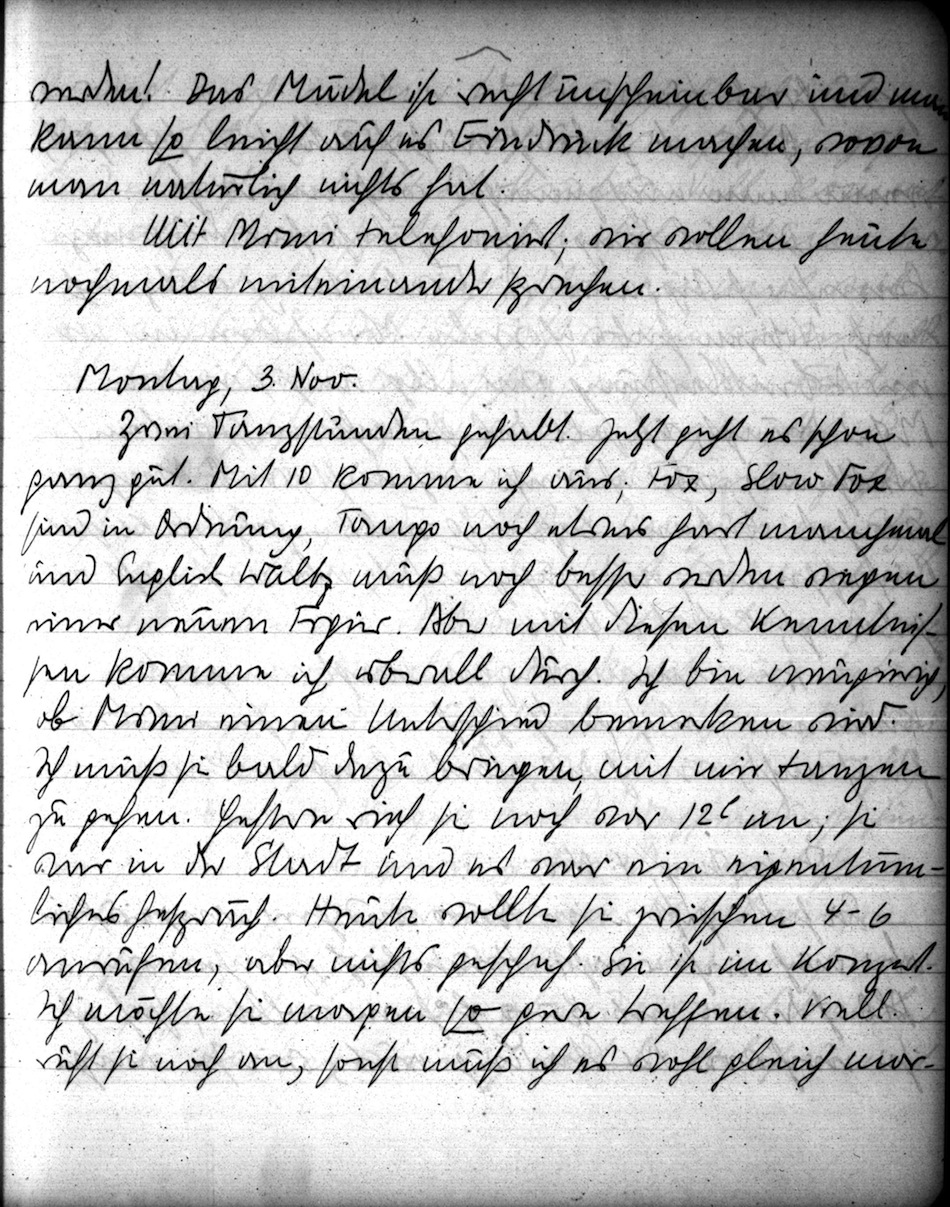 werden! Das Mädel ist recht unscheinbar und man
kann so leicht auch es Eindruck machen, wovon
man natürlich nichts hat.
Mit Mimi telefoniert; wir wollen heute
nochmals miteinander sprechen.
Montag, 3. Nov.
Zwei Tanzstunden gehabt. Jetzt geht es schon
ganz gut. Mit 10 komme ich aus; Fox, Slow Fox
sind in Ordnung, Tango noch etwas hart manchmal
und English Waltz muß noch besser werden wegen
einer neuen Figur. Aber mit diesen Kenntnis-
sen komme ich überall durch. Ich bin neugierig,
ob Mimi einen Unterschied bemerken wird.
Ich muß sie bald dazu bringen, mit mir tanzen
zu gehen. Gestern rief sie noch vor 12h an; sie
war in der Stadt und es war ein eigentüm-
liches Gespräch. Heute wollte sie zwischen 4-6
anrufen, aber nichts geschah. Sie ist im Konzert.
Ich möchte sie morgen so gern treffen. Viell.
ruft sie noch an, sonst muß ich es wohl gleich mor-